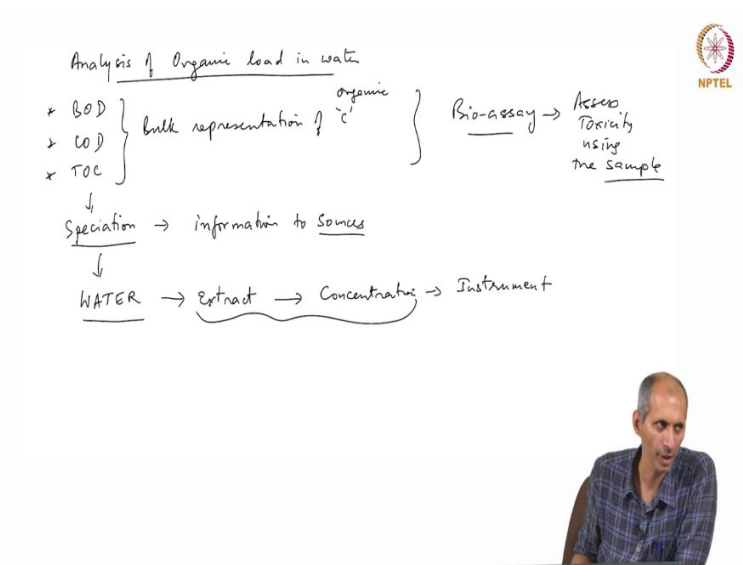 Analysis of Organic load in water
NPTEL
* BOD
* COD
* TOC
Bulk representation of organic 'C'
Bio-assay → Assess
Toxicity
using
the sample
↓
Speciation → information to Sources
↓
WATER → Extract → Concentration → Instrument